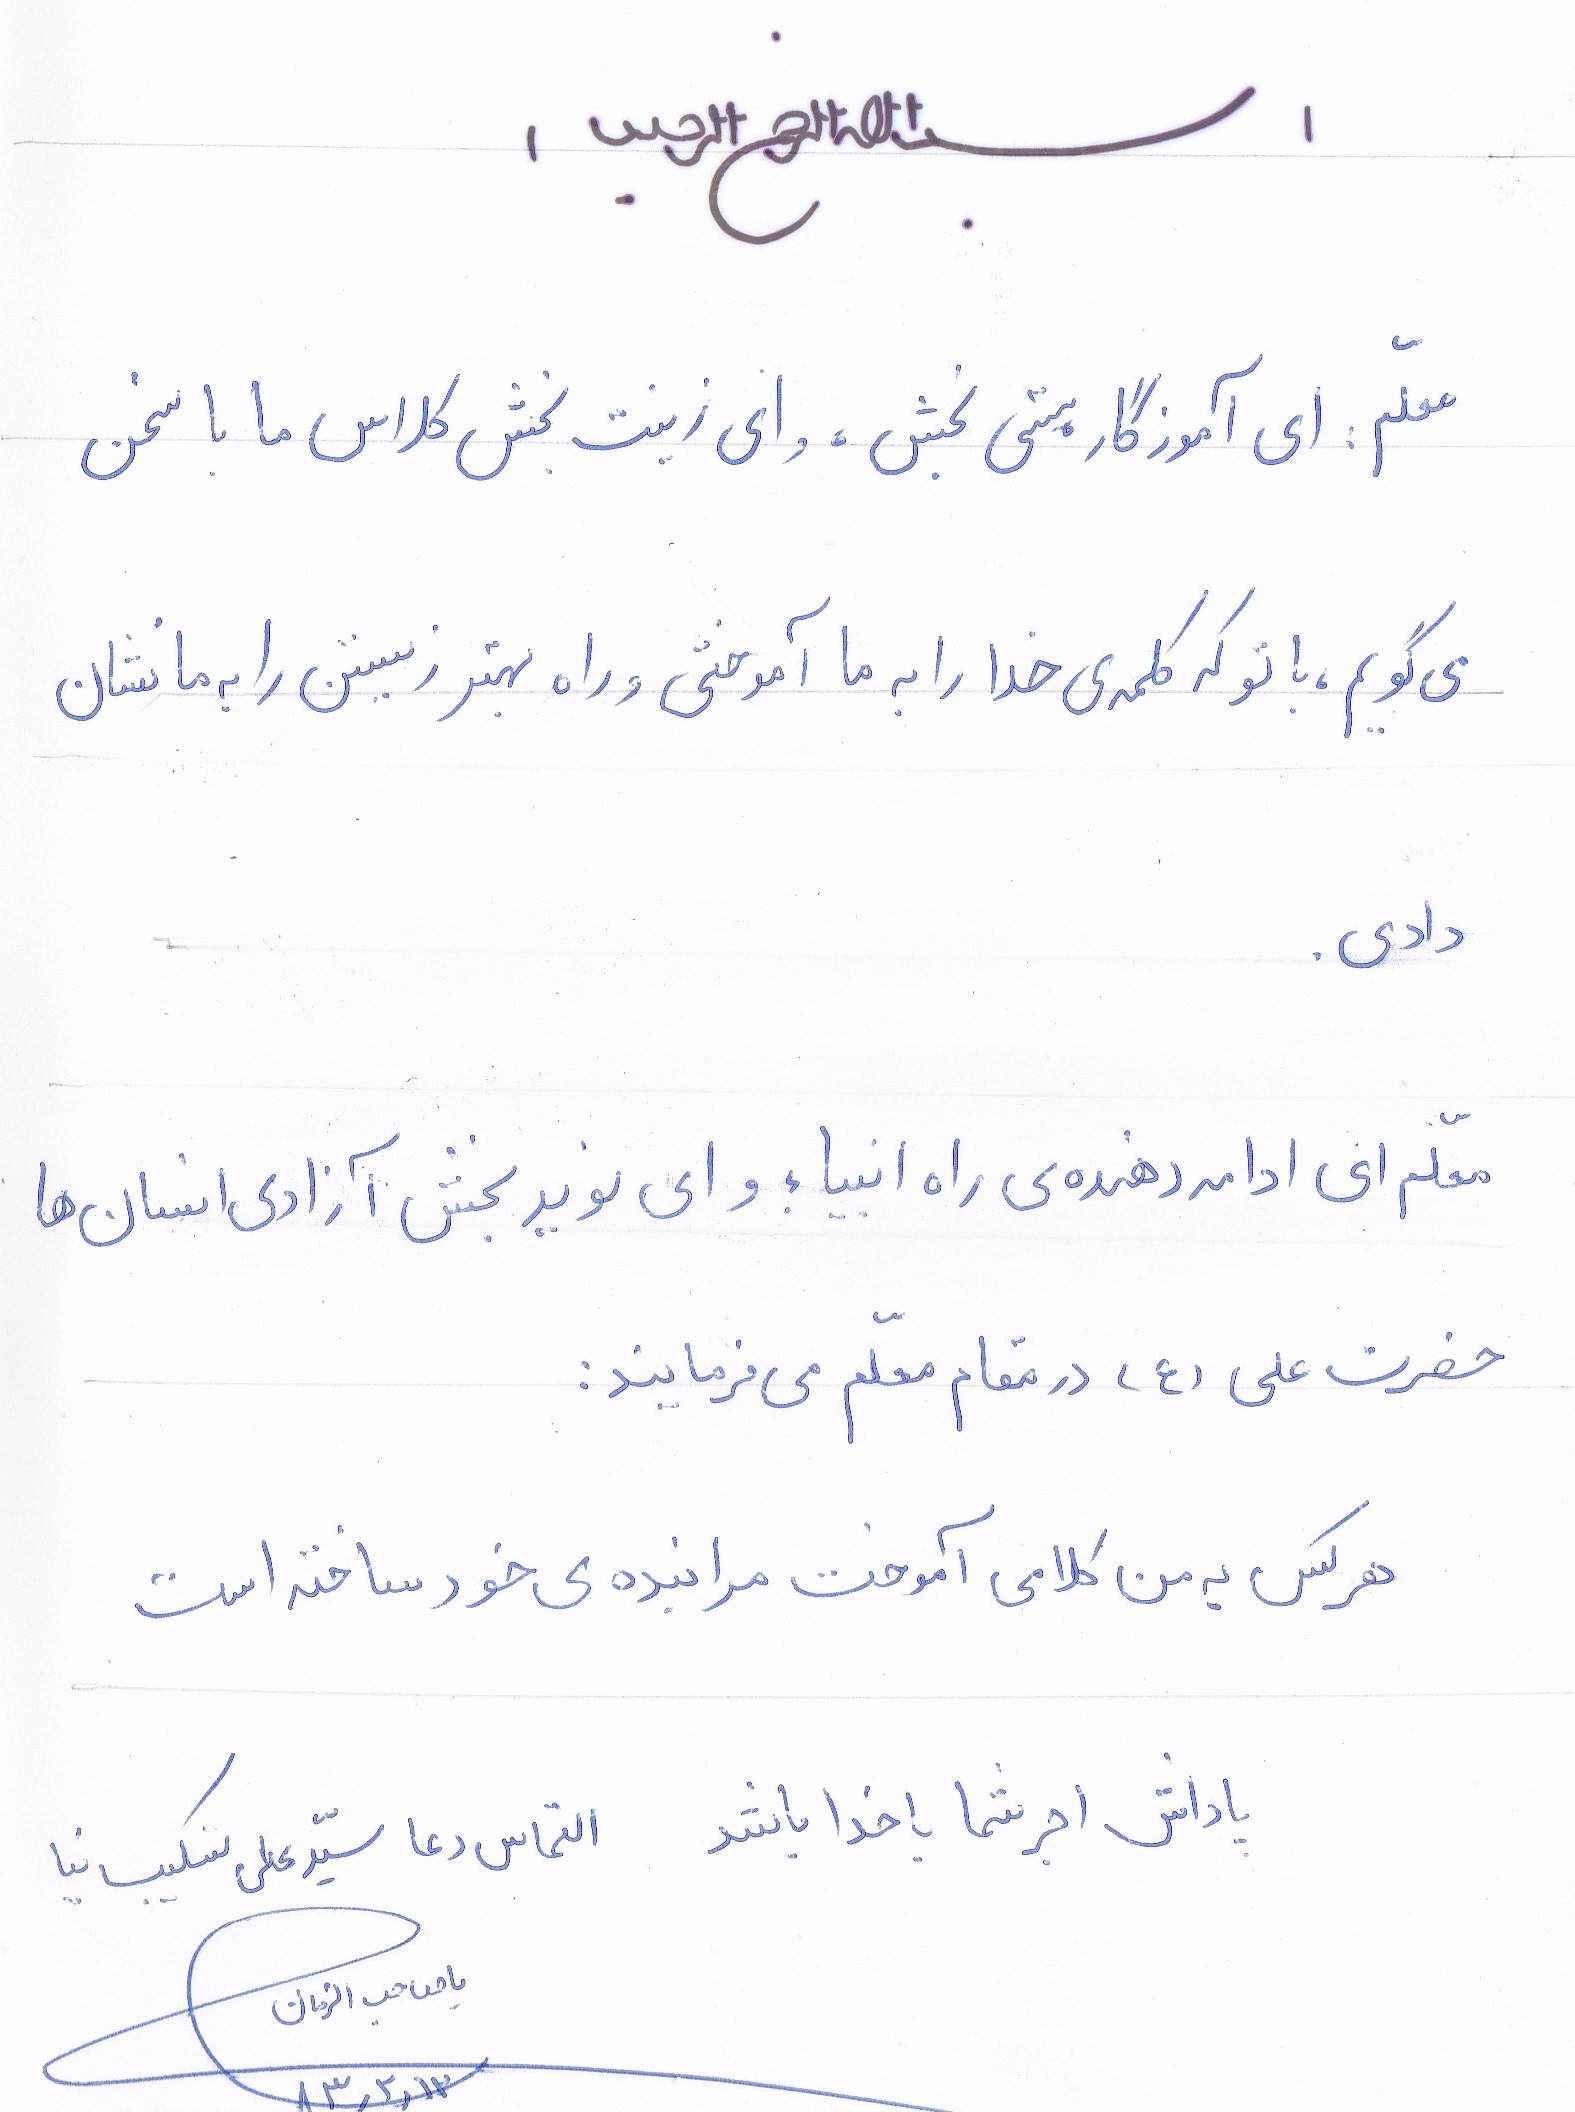 بسم الله الرحمن الرحیم
معلّم: ای آموزگار هستی بخش، و ای زینت بخش کلاس ما با سخن
می گویم، با تو که کلمه ی خدا را به ما آموختی و راه بهتر زیستن را به ما نشان
دادی.
معلّم ای ادامه دهنده ی راه انبیاء و ای نوید بخش آزادی انسان ها
حضرت علی (ع) در مقام معلّم می فرمایند:
هر کس به من کلامی آموخت مرا بنده ی خود ساخته است
پاداش اجر شما با خدا باشد التماس دعا سیّد علی شکیب نیا
یا صاحب الزمان
۸۳٫۲٫۱۲